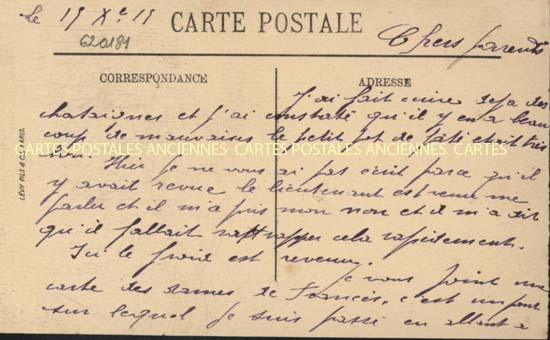 Le 15 Xe 15
CARTE POSTALE
620181
Chers parents
CORRESPONDANCE
ADRESSE
J'ai fait cuire deja des
chataignes et j'ai constaté qu'il y en a beau
coup de mauvaises le petit pot de paté etait très
CARTES POSTALES ANCIENNES CARTES POSTALES ANCIENNES CARTES
bon. Hier je ne vous ai pas ecrit parce qu'il
y avait revue le lieutenant est venu me
parler et il m'a pris mon nom et il m'a dit
qu'il fallait rattrapper cela rapidement.
Ici le froid est revenu.
Je vous joint une
carte des dames de France, c'est un pont
sur lequel je suis passé en allant a
LEVY FILS & Cie PARIS